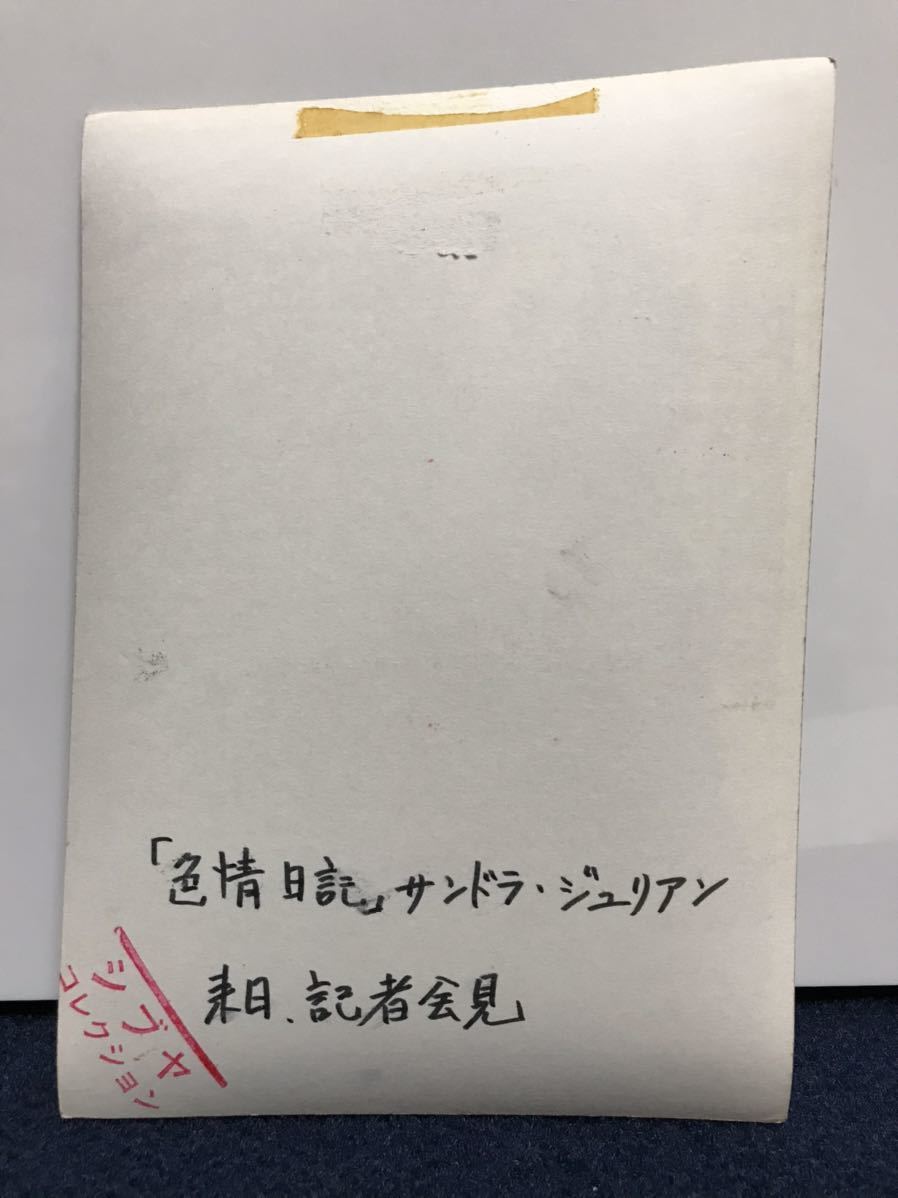 「色情日記」サンドラ・ジュリアン
来日、記者会見
シブヤ
コレクション